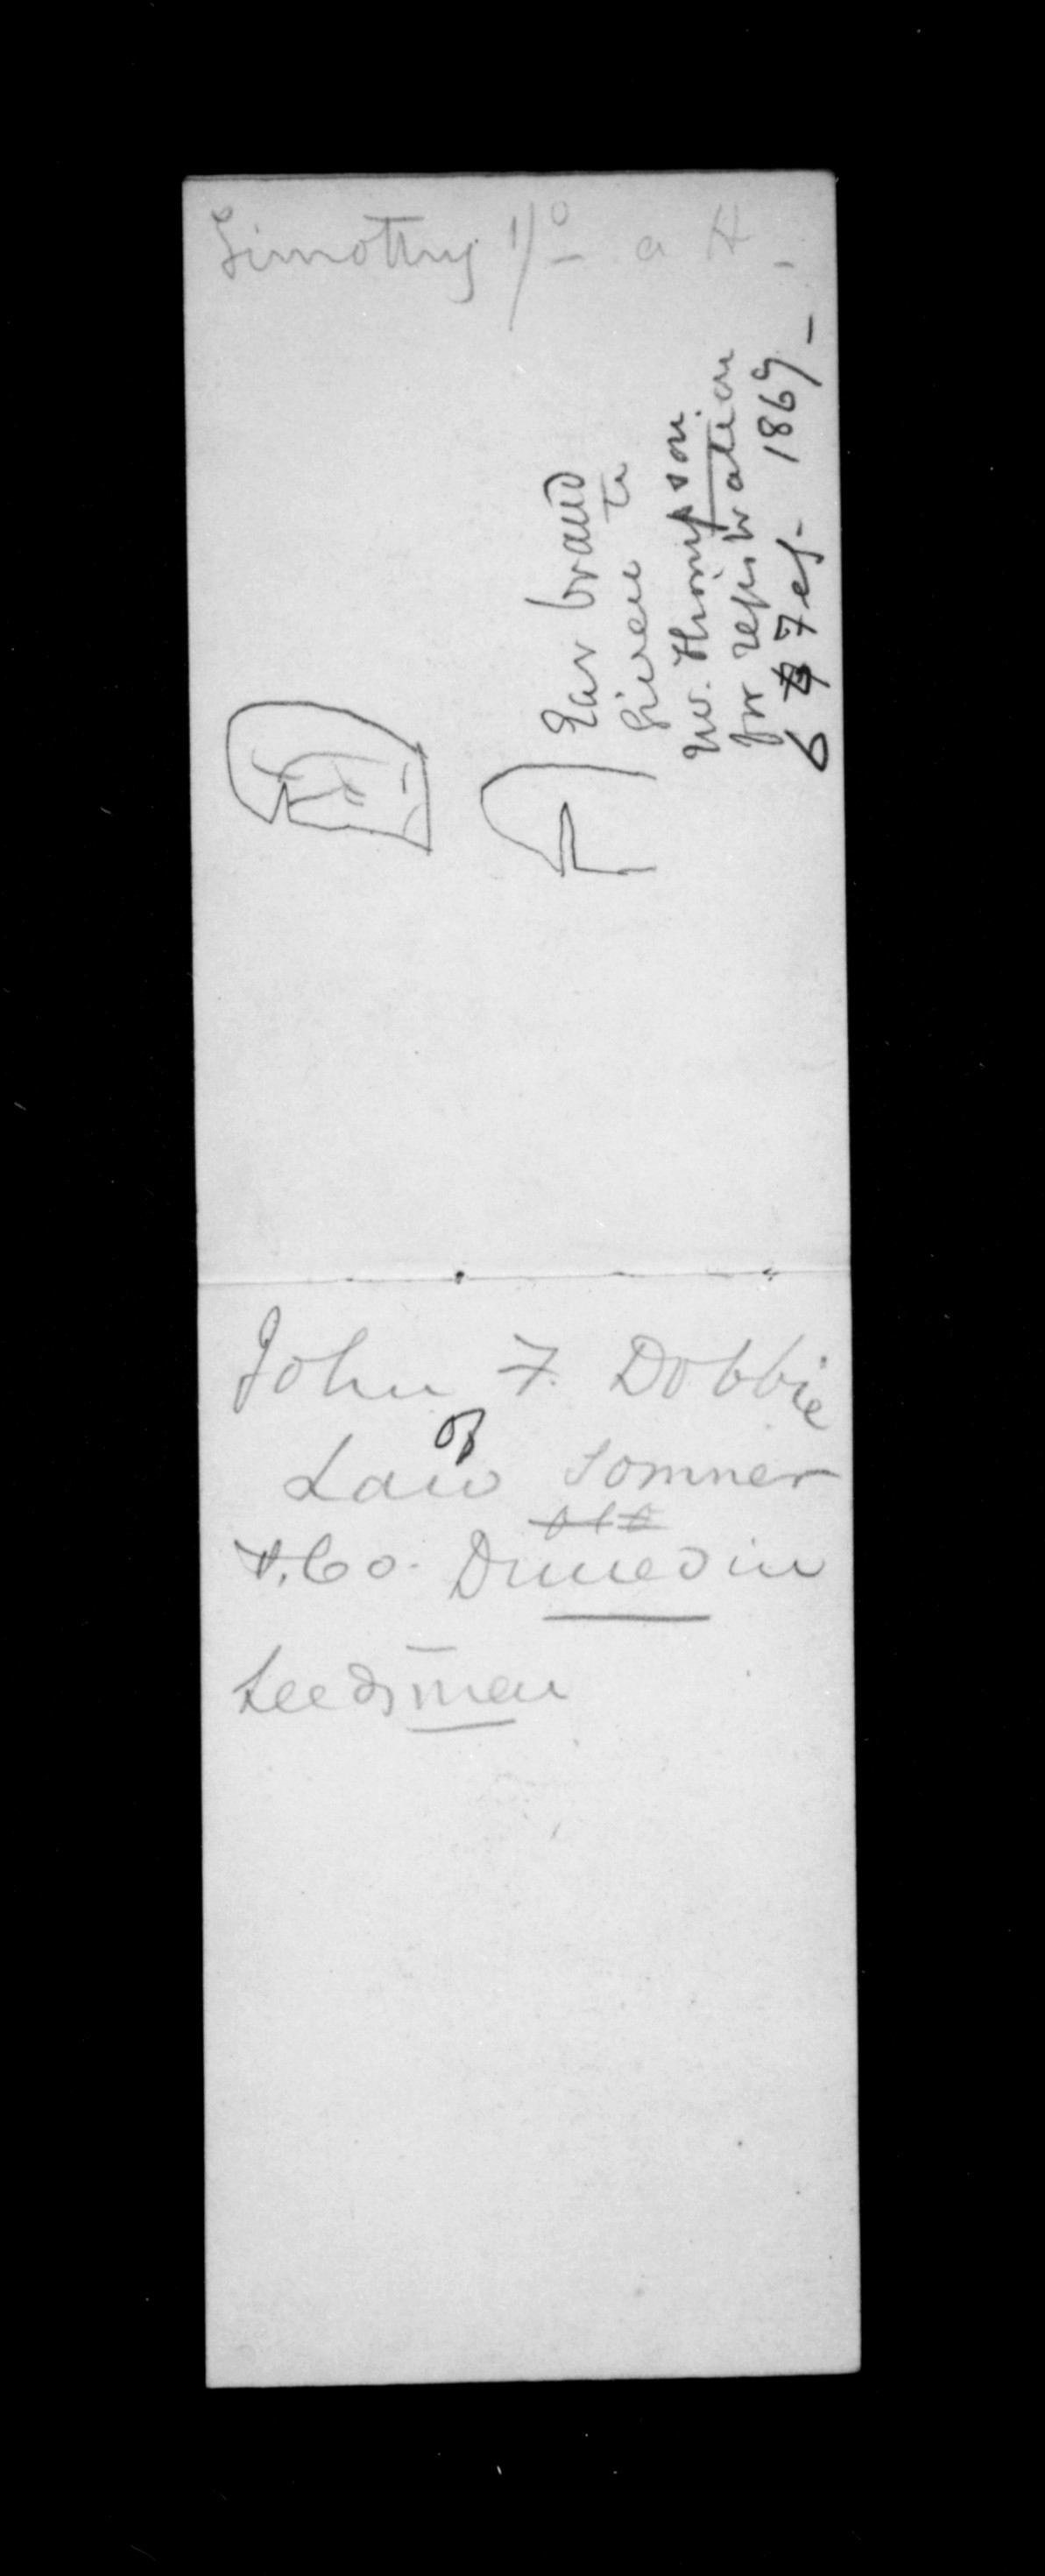 Timothy 1/0 a H -
Ear brand
given to
Mr. Thompson
for registration
6 7 Feb. 1869 -
John F. Dobbie
of
Law Somner
& Co. Dunedin
Seedsmen